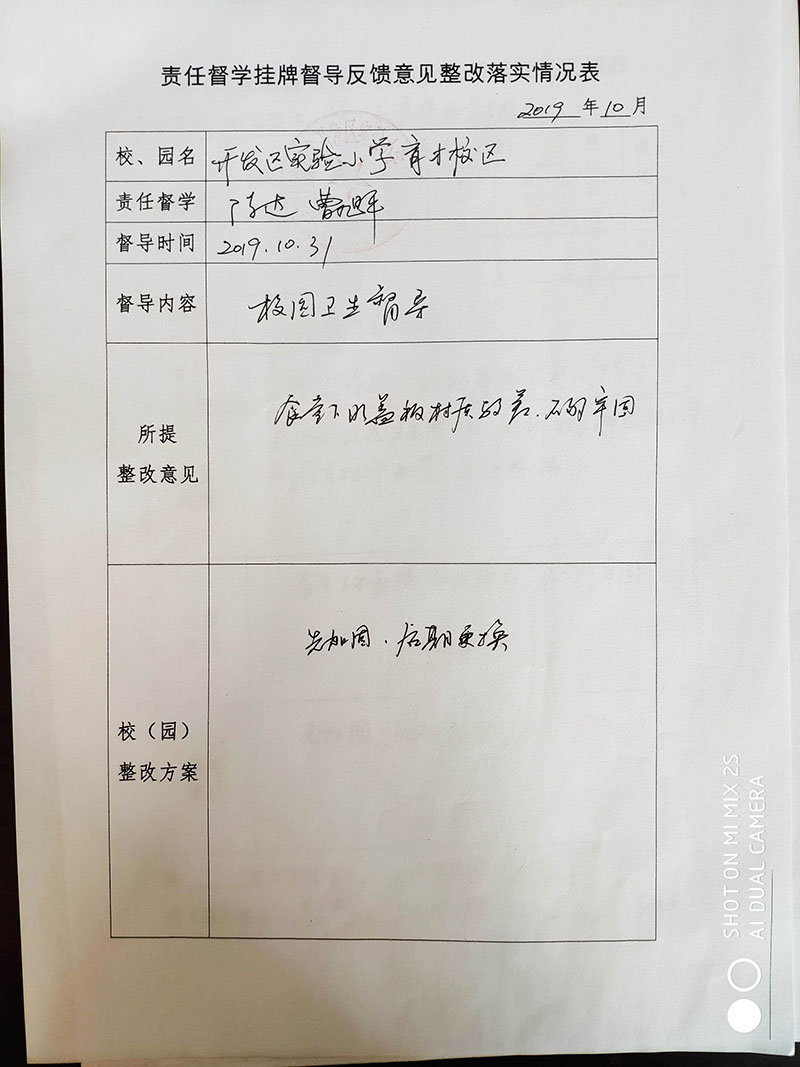 责任督学挂牌督导反馈意见整改落实情况表
2019 年 10 月
校、园名 开发区实验小学育才校区
责任督学 陈达 曹旭晖
督导时间 2019.10.31
督导内容 校园卫生督导
食堂下水盖板材质较差、不够牢固
所提
整改意见
先加固、后期更换
校（园）
整改方案
SHOT ON MI MIX 2S
AI DUAL CAMERA